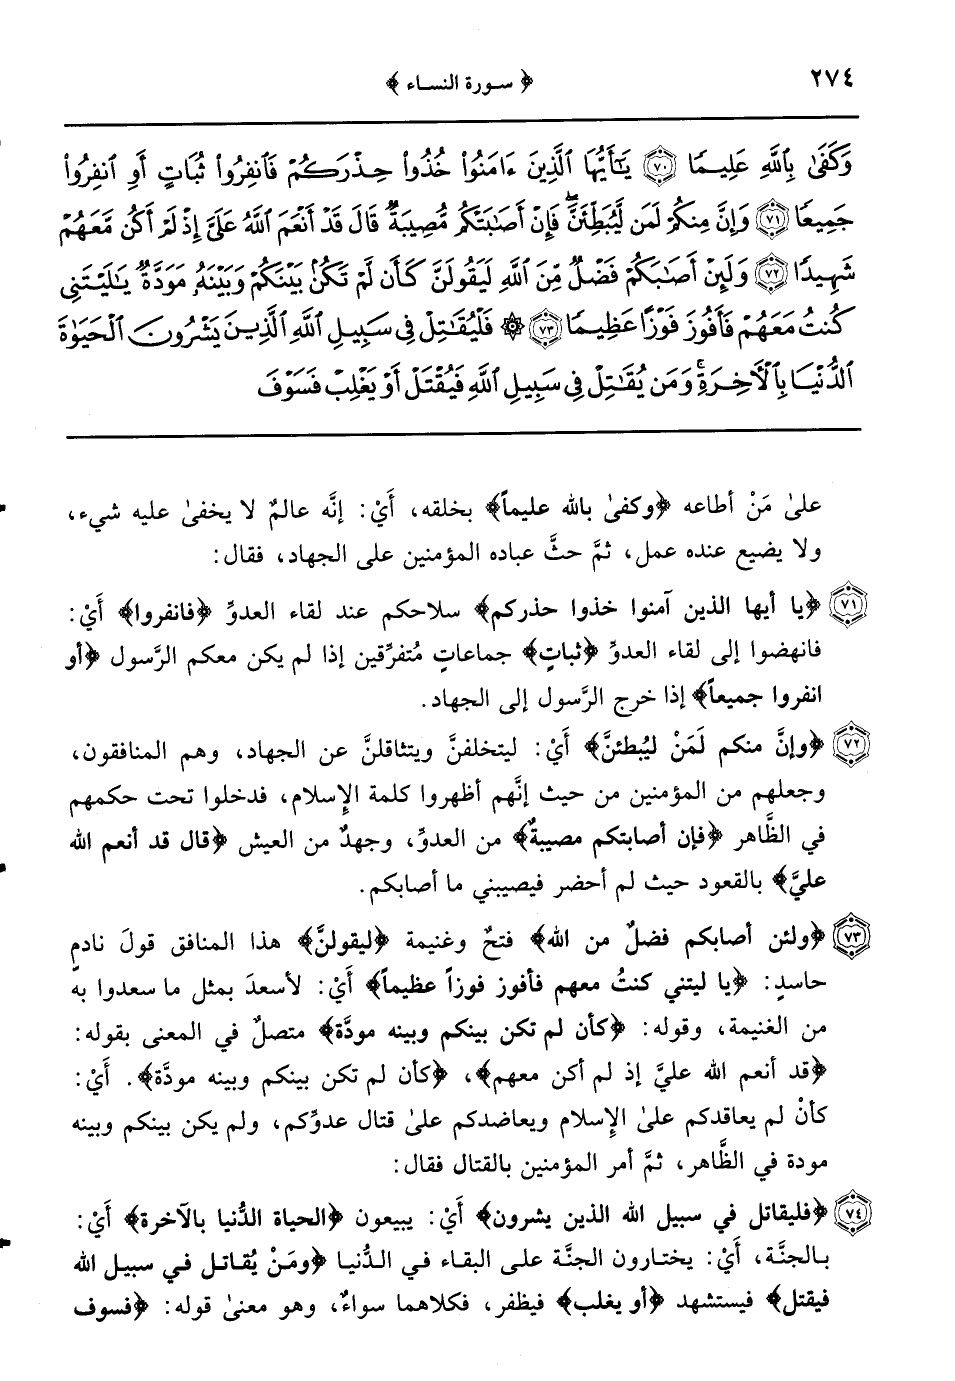 ﴿ سورة النساء ﴾ ٢٧٤
وَكَفَىٰ بِٱللَّهِ عَلِيمًا ٧٠ يَٰٓأَيُّهَا ٱلَّذِينَ ءَامَنُوا۟ خُذُوا۟ حِذْرَكُمْ فَٱنفِرُوا۟ ثُبَاتٍ أَوِ ٱنفِرُوا۟
جَمِيعًا ٧١ وَإِنَّ مِنكُمْ لَمَن لَّيُبَطِّئَنَّ ۖ فَإِنْ أَصَٰبَتْكُم مُّصِيبَةٌ قَالَ قَدْ أَنْعَمَ ٱللَّهُ عَلَىَّ إِذْ لَمْ أَكُن مَّعَهُمْ
شَهِيدًا ٧٢ وَلَئِنْ أَصَٰبَكُمْ فَضْلٌ مِّنَ ٱللَّهِ لَيَقُولَنَّ كَأَن لَّمْ تَكُنۢ بَيْنَكُمْ وَبَيْنَهُۥ مَوَدَّةٌ يَٰلَيْتَنِى
كُنتُ مَعَهُمْ فَأَفُوزَ فَوْزًا عَظِيمًا ٧٣ ۞ فَلْيُقَٰتِلْ فِى سَبِيلِ ٱللَّهِ ٱلَّذِينَ يَشْرُونَ ٱلْحَيَوٰةَ
ٱلدُّنْيَا بِٱلْءَاخِرَةِ ۚ وَمَن يُقَٰتِلْ فِى سَبِيلِ ٱللَّهِ فَيُقْتَلْ أَوْ يَغْلِبْ فَسَوْفَ
علىٰ مَنْ أطاعه ﴿وكفىٰ بالله عليماً﴾ بخلقه، أَيْ: إنَّه عالمٌ لا يخفىٰ عليه شيء،
ولا يضيع عنده عمل، ثمَّ حثَّ عباده المؤمنين على الجهاد، فقال:
٧١ ﴿يا أيها الذين آمنوا خذوا حذركم﴾ سلاحكم عند لقاء العدوِّ ﴿فانفروا﴾ أَيْ:
فانهضوا إلى لقاء العدوِّ ﴿ثباتٍ﴾ جماعاتٍ مُتفرِّقين إذا لم يكن معكم الرَّسول ﴿أو
انفروا جميعاً﴾ إذا خرج الرَّسول إلى الجهاد.
٧٢ ﴿وإنَّ منكم لَمَنْ ليُبطئنَّ﴾ أَيْ: ليتخلفنَّ ويتثاقلنَّ عن الجهاد، وهم المنافقون،
وجعلهم من المؤمنين من حيث إنَّهم أظهروا كلمة الإِسلام، فدخلوا تحت حكمهم
في الظَّاهر ﴿فإن أصابتكم مصيبةٌ﴾ من العدوِّ، وجهدٌ من العيش ﴿قال قد أنعم الله
عليَّ﴾ بالقعود حيث لم أحضر فيصيبني ما أصابكم.
٧٣ ﴿ولئن أصابكم فضلٌ من الله﴾ فتحٌ وغنيمة ﴿ليقولنَّ﴾ هذا المنافق قولَ نادمٍ
حاسدٍ: ﴿يا ليتني كنتُ معهم فأفوز فوزاً عظيماً﴾ أَيْ: لأسعدَ بمثل ما سعدوا به
من الغنيمة، وقوله: ﴿كأن لم تكن بينكم وبينه مودَّة﴾ متصلٌ في المعنى بقوله:
﴿قد أنعم الله عليَّ إذ لم أكن معهم﴾، ﴿كأن لم تكن بينكم وبينه مودَّة﴾. أَيْ:
كأنْ لم يعاقدكم علىٰ الإِسلام ويعاضدكم علىٰ قتال عدوِّكم، ولم يكن بينكم وبينه
مودة في الظَّاهر، ثمَّ أمر المؤمنين بالقتال فقال:
٧٤ ﴿فليقاتل في سبيل الله الذين يشرون﴾ أَيْ: يبيعون ﴿الحياة الدُّنيا بالآخرة﴾ أَيْ:
بالجنَّة، أَيْ: يختارون الجنَّة على البقاء في الدُّنيا ﴿ومَنْ يُقاتل في سبيل الله
فيقتل﴾ فيستشهد ﴿أو يغلب﴾ فيظفر، فكلاهما سواءٌ، وهو معنىٰ قوله: ﴿فسوف